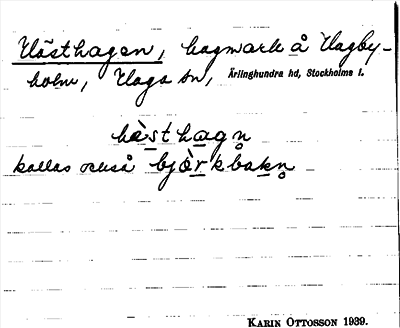 Hästhagen, hagmark å Hagby-
holm, Haga sn, Ärlinghundra hd, Stockholms l.
hɛ̀sthagn̥
kallas också bjɛ̀rkbakn̥
KARIN OTTOSSON 1939.